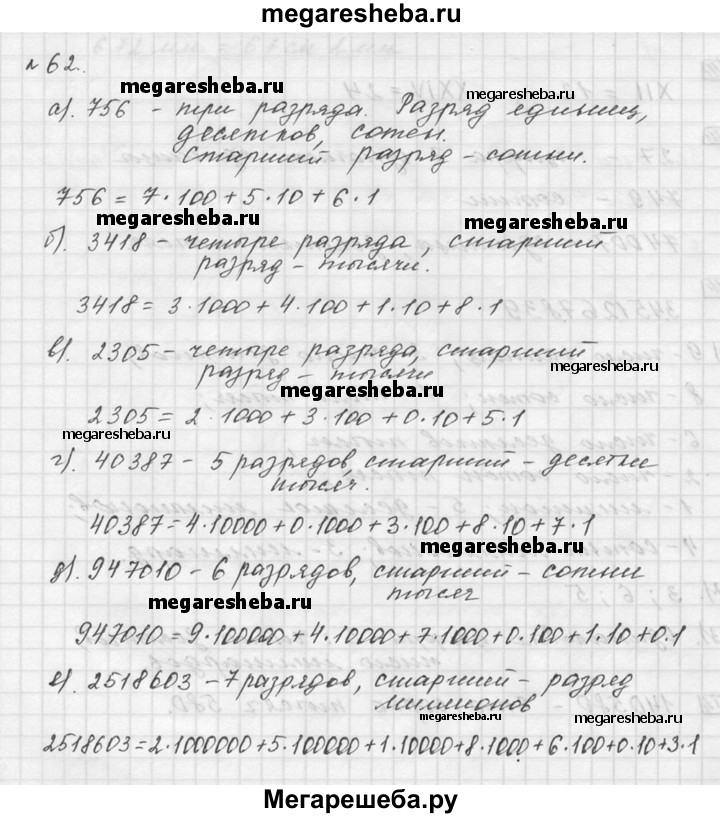 megaresheba.ru
№ 62.
megaresheba.ru
megaresheba.ru
а). 756 - три разряда. Разряд единиц,
десятков, сотен.
Старший разряд - сотни.
756 = 7·100 + 5·10 + 6·1
megaresheba.ru
megaresheba.ru
б). 3418 - четыре разряда, старший
разряд - тысячи.
3418 = 3·1000 + 4·100 + 1·10 + 8·1
в). 2305 - четыре разряда, старший
разряд - тысячи
megaresheba.ru
megaresheba.ru
2305 = 2·1000 + 3·100 + 0·10 + 5·1
megaresheba.ru
г). 40387 - 5 разрядов, старший - десятки
тысяч.
40387 = 4·10000 + 0·1000 + 3·100 + 8·10 + 7·1
megaresheba.ru
д). 947010 - 6 разрядов, старший - сотни
тысяч
megaresheba.ru
947010 = 9·100000 + 4·10000 + 7·1000 + 0·100 + 1·10 + 0·1
е). 2518603 - 7 разрядов, старший - разряд
миллионов
megaresheba.ru
megaresheba.ru
2518603 = 2·1000000 + 5·100000 + 1·10000 + 8·1000 + 6·100 + 0·10 + 3·1
Мегарешеба.ру